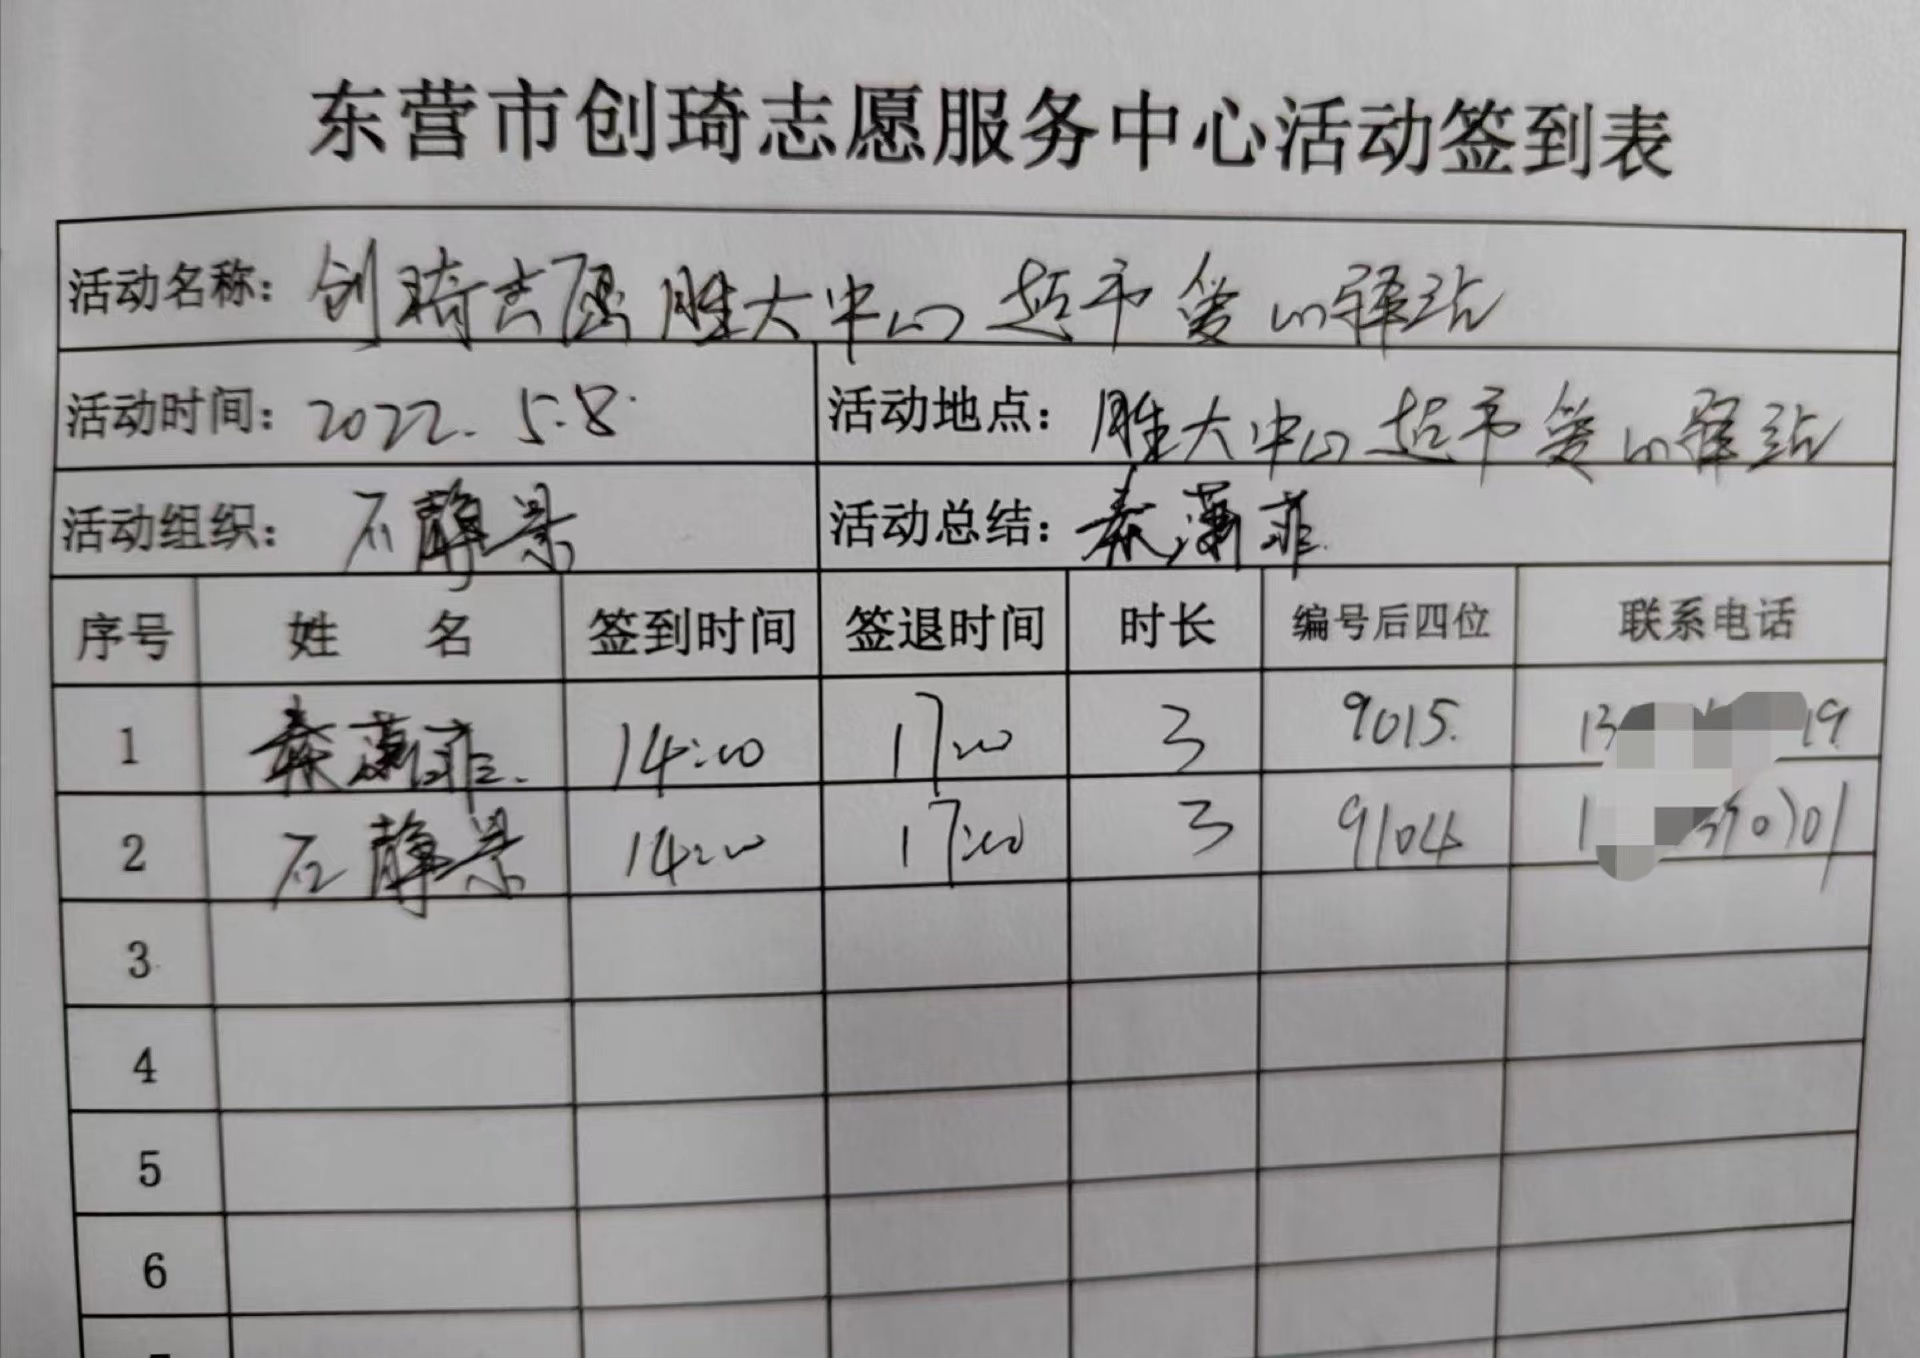 东营市创琦志愿服务中心活动签到表
活动名称：创琦志愿胜大中心超市爱心驿站
活动时间：2022.5.8 活动地点：胜大中心超市爱心驿站
活动组织：石静 活动总结：秦潇菲
序号 姓名 签到时间 签退时间 时长 编号后四位 联系电话
1 秦潇菲 14:00 17:00 3 9015 13 19
2 石静 14:00 17:00 3 9104 1
3
4
5
6